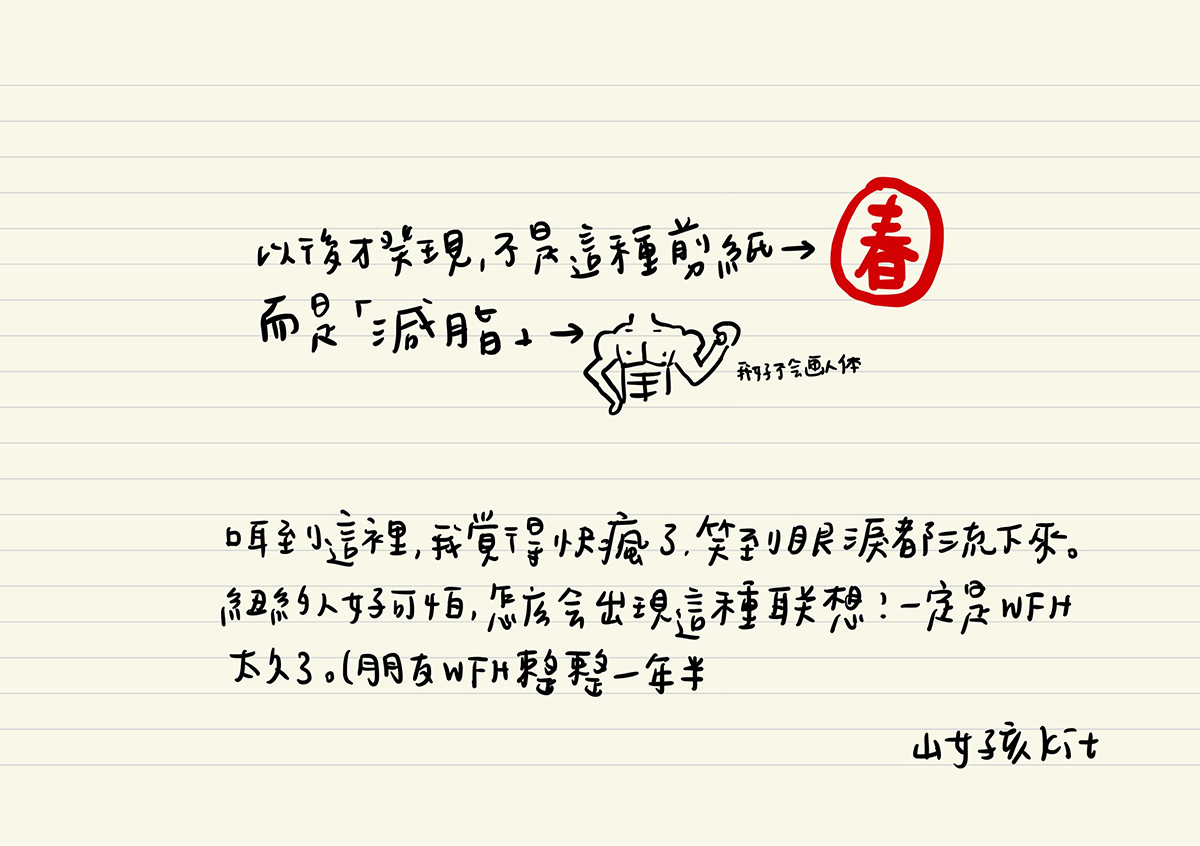 以後才發現,不是這種剪紙→ 春
而是「減脂」→
我好不会画人体
耳到這裡,我覺得快瘋了,笑到眼淚都流下來。
紐約人好可怕,怎么会出現這種联想!一定是WFH
太久了。(朋友WFH整整一年半
山女孩kit